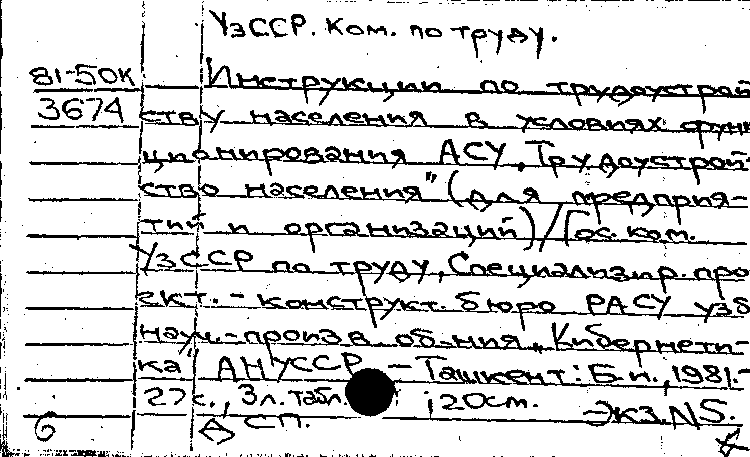 УзССР. Ком. по труду.
81-50К Инструкции по трудоустрой
3674 ству населения в условиях функ
ционирования АСУ „Трудоустрой-
ство населения" (для предприя-
тий и организаций) / Гос. ком.
УзССР по труду, Специализир. про
ект.-конструкт. бюро РАСУ Узб
науч.-произв об-ния „Кибернети-
ка" АН УССР. - Ташкент: Б.и., 1981.-
27с., 3л. табл. ; 20см. Экз. N5.
6 ДСП.